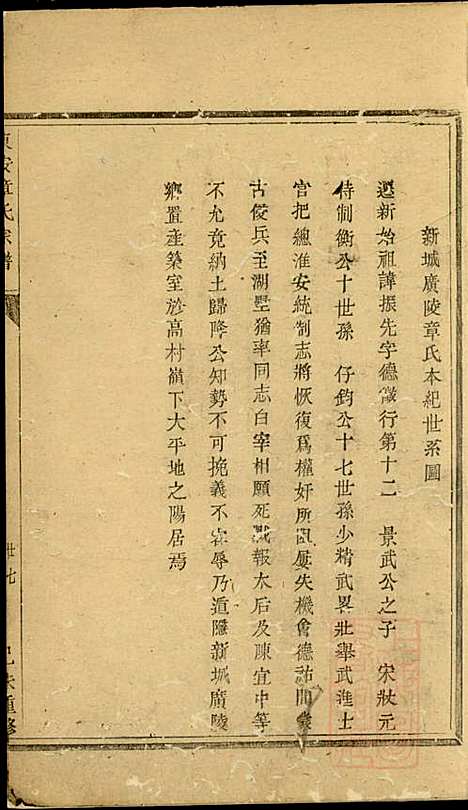 新城廣陵章氏本紀世系圖
遷新始祖諱振先字德徵行第十二 景武公之子 宋狀元
侍制衡公十世孫 仔鈞公十七世孫少精武畧壯舉武進士
官把總淮安統制志將恢復爲權奸所阻屢失機會德祐間蒙
古俊兵至湖墅猶率同志白宰相願死戰報太后及陳宜中等
不允竟納土歸降公知勢不可挽義不容辱乃遁隱新城廣陵
鄉置產築室於高村嶺下大平地之陽居焉
章氏宗譜
卅七
重修